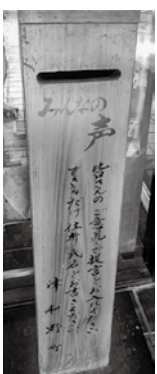 みんなの
声
皆さんのご意見ご提言をお入れ下さい
できるだけ住所、氏名をお書き下さい
津和野町